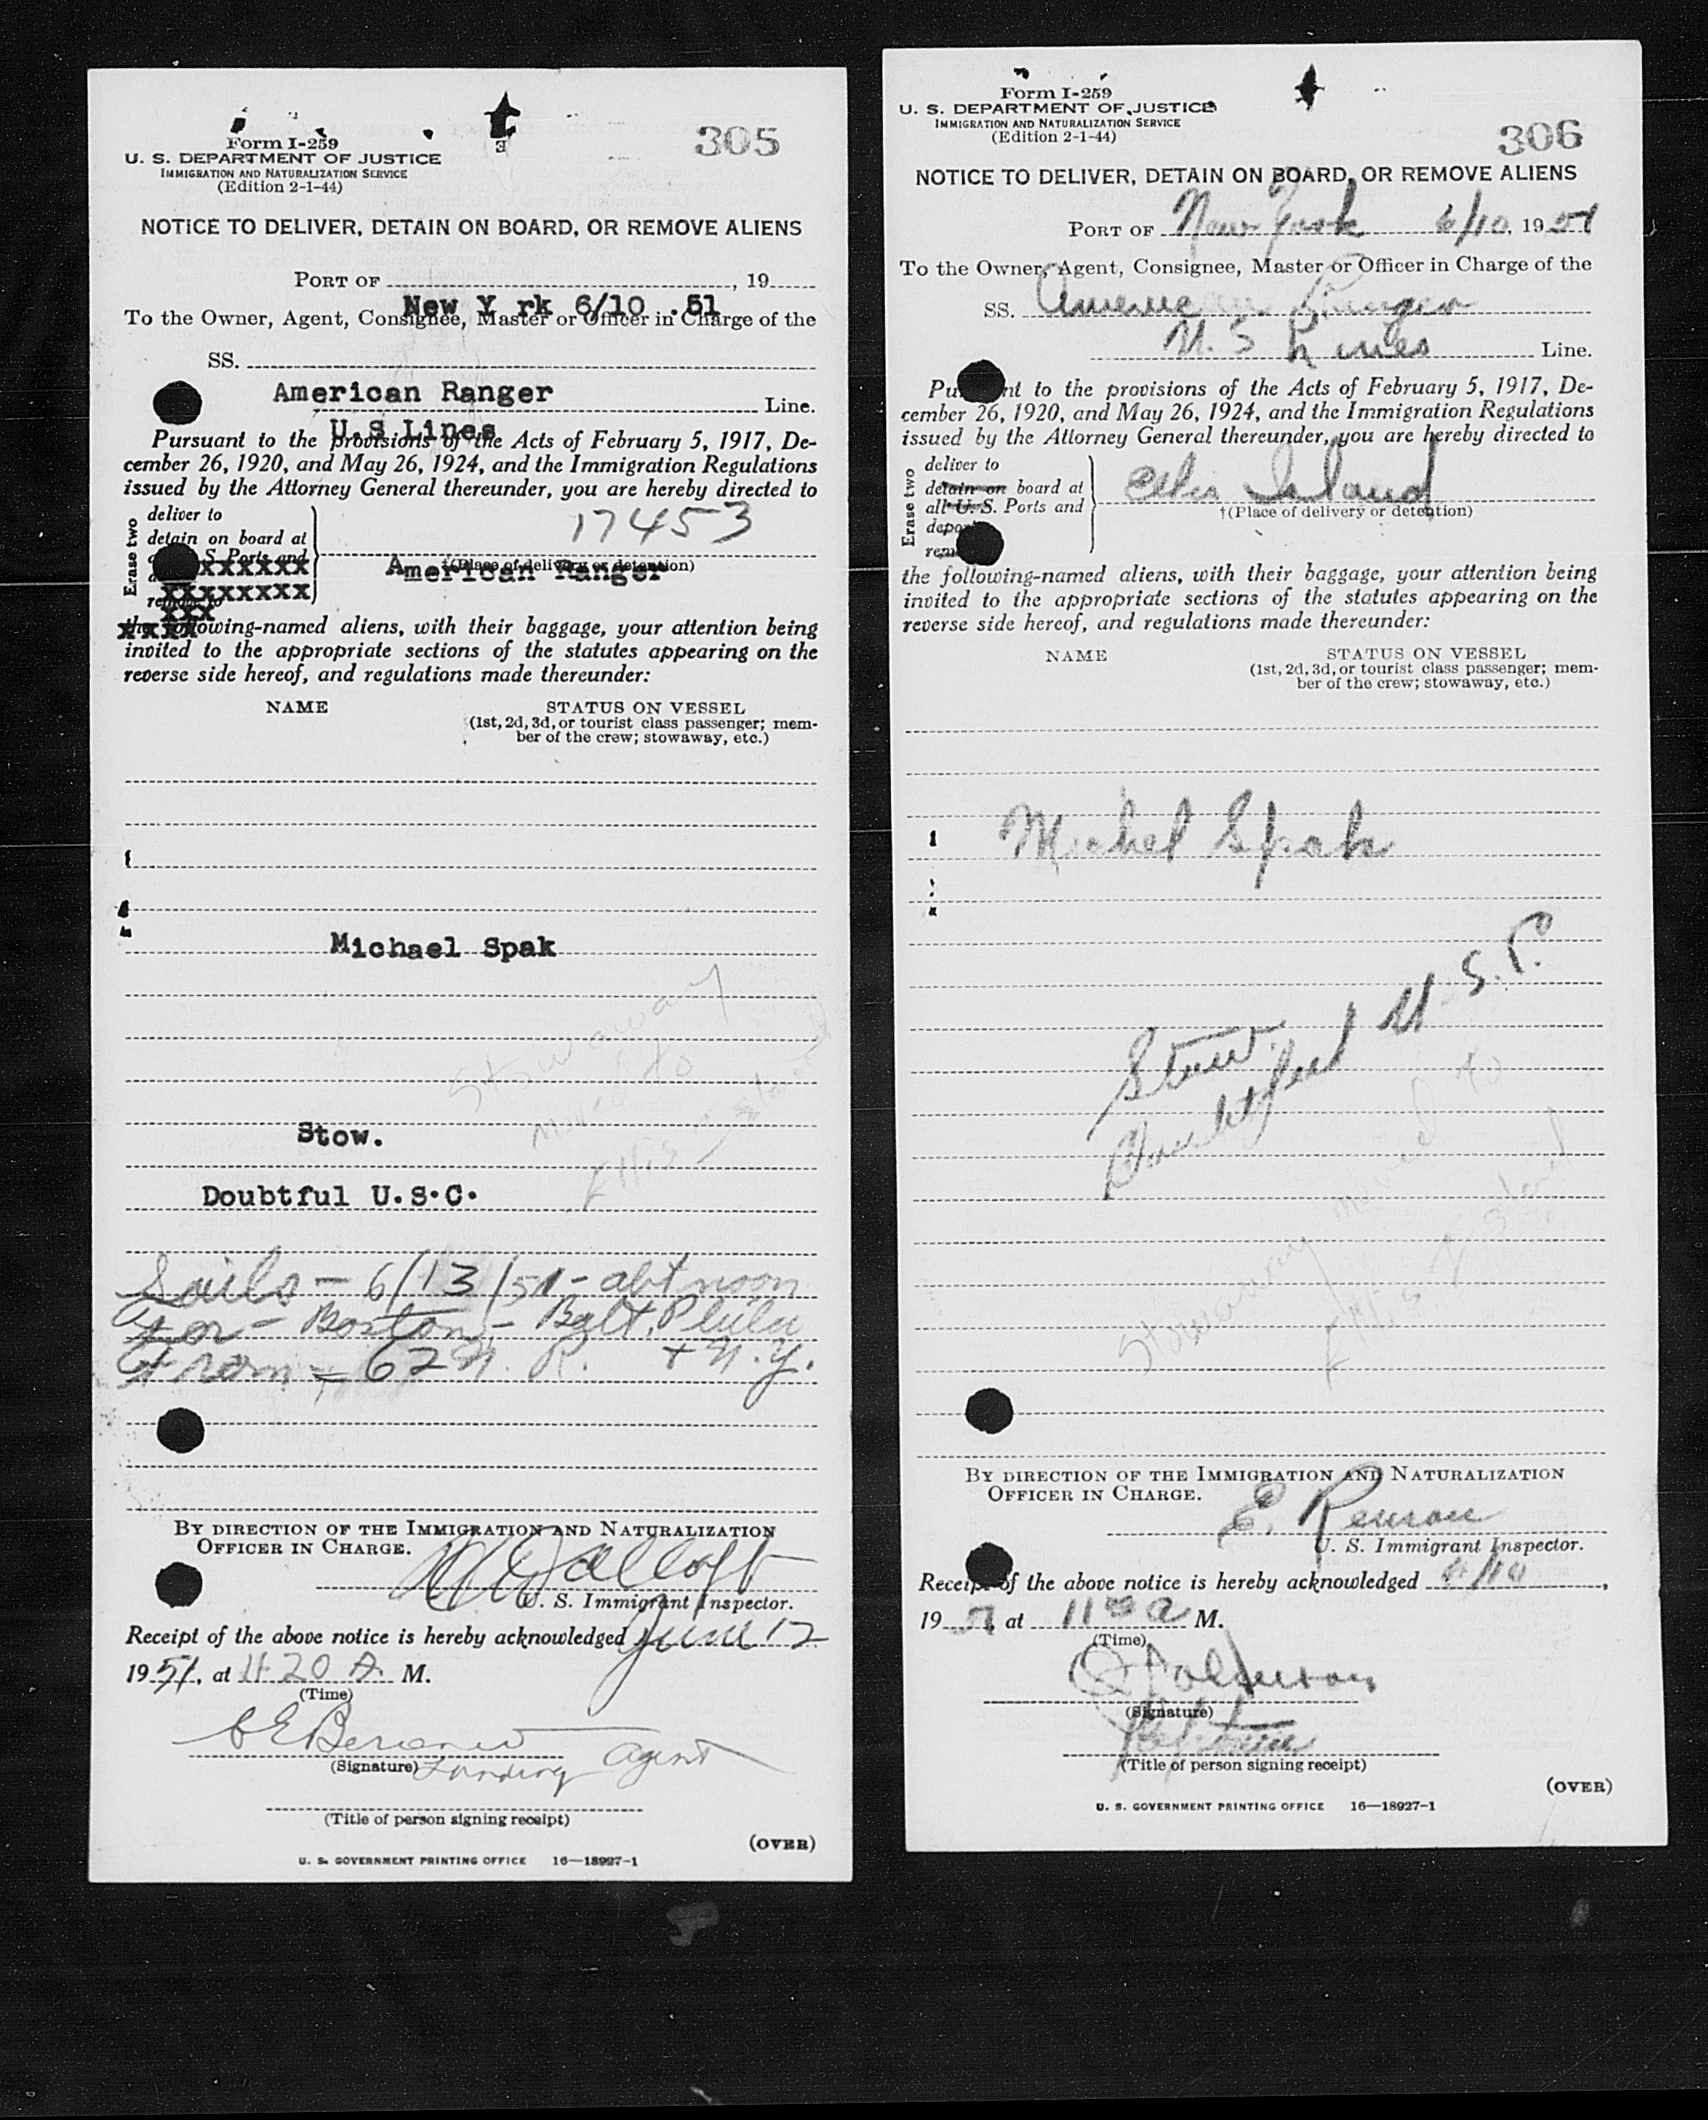 305
Form I-259
U. S. DEPARTMENT OF JUSTICE
IMMIGRATION AND NATURALIZATION SERVICE
(Edition 2-1-44)
NOTICE TO DELIVER, DETAIN ON BOARD, OR REMOVE ALIENS
PORT OF , 19
New Y rk 6/10 .51
To the Owner, Agent, Consignee, Master or Officer in Charge of the
SS.
American Ranger
Line.
U.S Lines
Pursuant to the provisions of the Acts of February 5, 1917, De-
cember 26, 1920, and May 26, 1924, and the Immigration Regulations
issued by the Attorney General thereunder, you are hereby directed to
Erase two
deliver to
detain on board at
S. Ports and
remove to
17453
†(Place of delivery or detention)
American Ranger
the following-named aliens, with their baggage, your attention being
invited to the appropriate sections of the statutes appearing on the
reverse side hereof, and regulations made thereunder:
NAME STATUS ON VESSEL
(1st, 2d, 3d, or tourist class passenger; mem-
ber of the crew; stowaway, etc.)
Michael Spak
Stowaway
moved to
Ellis Island
Stow.
Doubtful U.S.C.
Sails - 6/13/51 - abt noon
For - Boston, - Balt, Phila
From - 62 N. R. + N.Y.
BY DIRECTION OF THE IMMIGRATION AND NATURALIZATION
OFFICER IN CHARGE.
U. S. Immigrant Inspector.
Receipt of the above notice is hereby acknowledged June 12
1951, at 11 20 A. M.
(Time)
(Signature) Landing Agent
(Title of person signing receipt)
(OVER)
U. S. GOVERNMENT PRINTING OFFICE 16—18927-1
306
Form I-259
U. S. DEPARTMENT OF JUSTICE
IMMIGRATION AND NATURALIZATION SERVICE
(Edition 2-1-44)
NOTICE TO DELIVER, DETAIN ON BOARD, OR REMOVE ALIENS
PORT OF New York 6/10, 1951
To the Owner, Agent, Consignee, Master or Officer in Charge of the
SS. American Ranger
U. S Lines Line.
Pursuant to the provisions of the Acts of February 5, 1917, De-
cember 26, 1920, and May 26, 1924, and the Immigration Regulations
issued by the Attorney General thereunder, you are hereby directed to
Erase two
deliver to
detain on board at
all U. S. Ports and
Ellis Island
†(Place of delivery or detention)
the following-named aliens, with their baggage, your attention being
invited to the appropriate sections of the statutes appearing on the
reverse side hereof, and regulations made thereunder:
NAME STATUS ON VESSEL
(1st, 2d, 3d, or tourist class passenger; mem-
ber of the crew; stowaway, etc.)
Michel Spak
Stow.
Doubtful U.S.C.
Stowaway
moved to
Ellis Island
BY DIRECTION OF THE IMMIGRATION AND NATURALIZATION
OFFICER IN CHARGE.
E.
U. S. Immigrant Inspector.
Receipt of the above notice is hereby acknowledged 6/10,
1951, at 11 A M.
(Time)
(Signature)
(Title of person signing receipt)
(OVER)
U. S. GOVERNMENT PRINTING OFFICE 16—18927-1